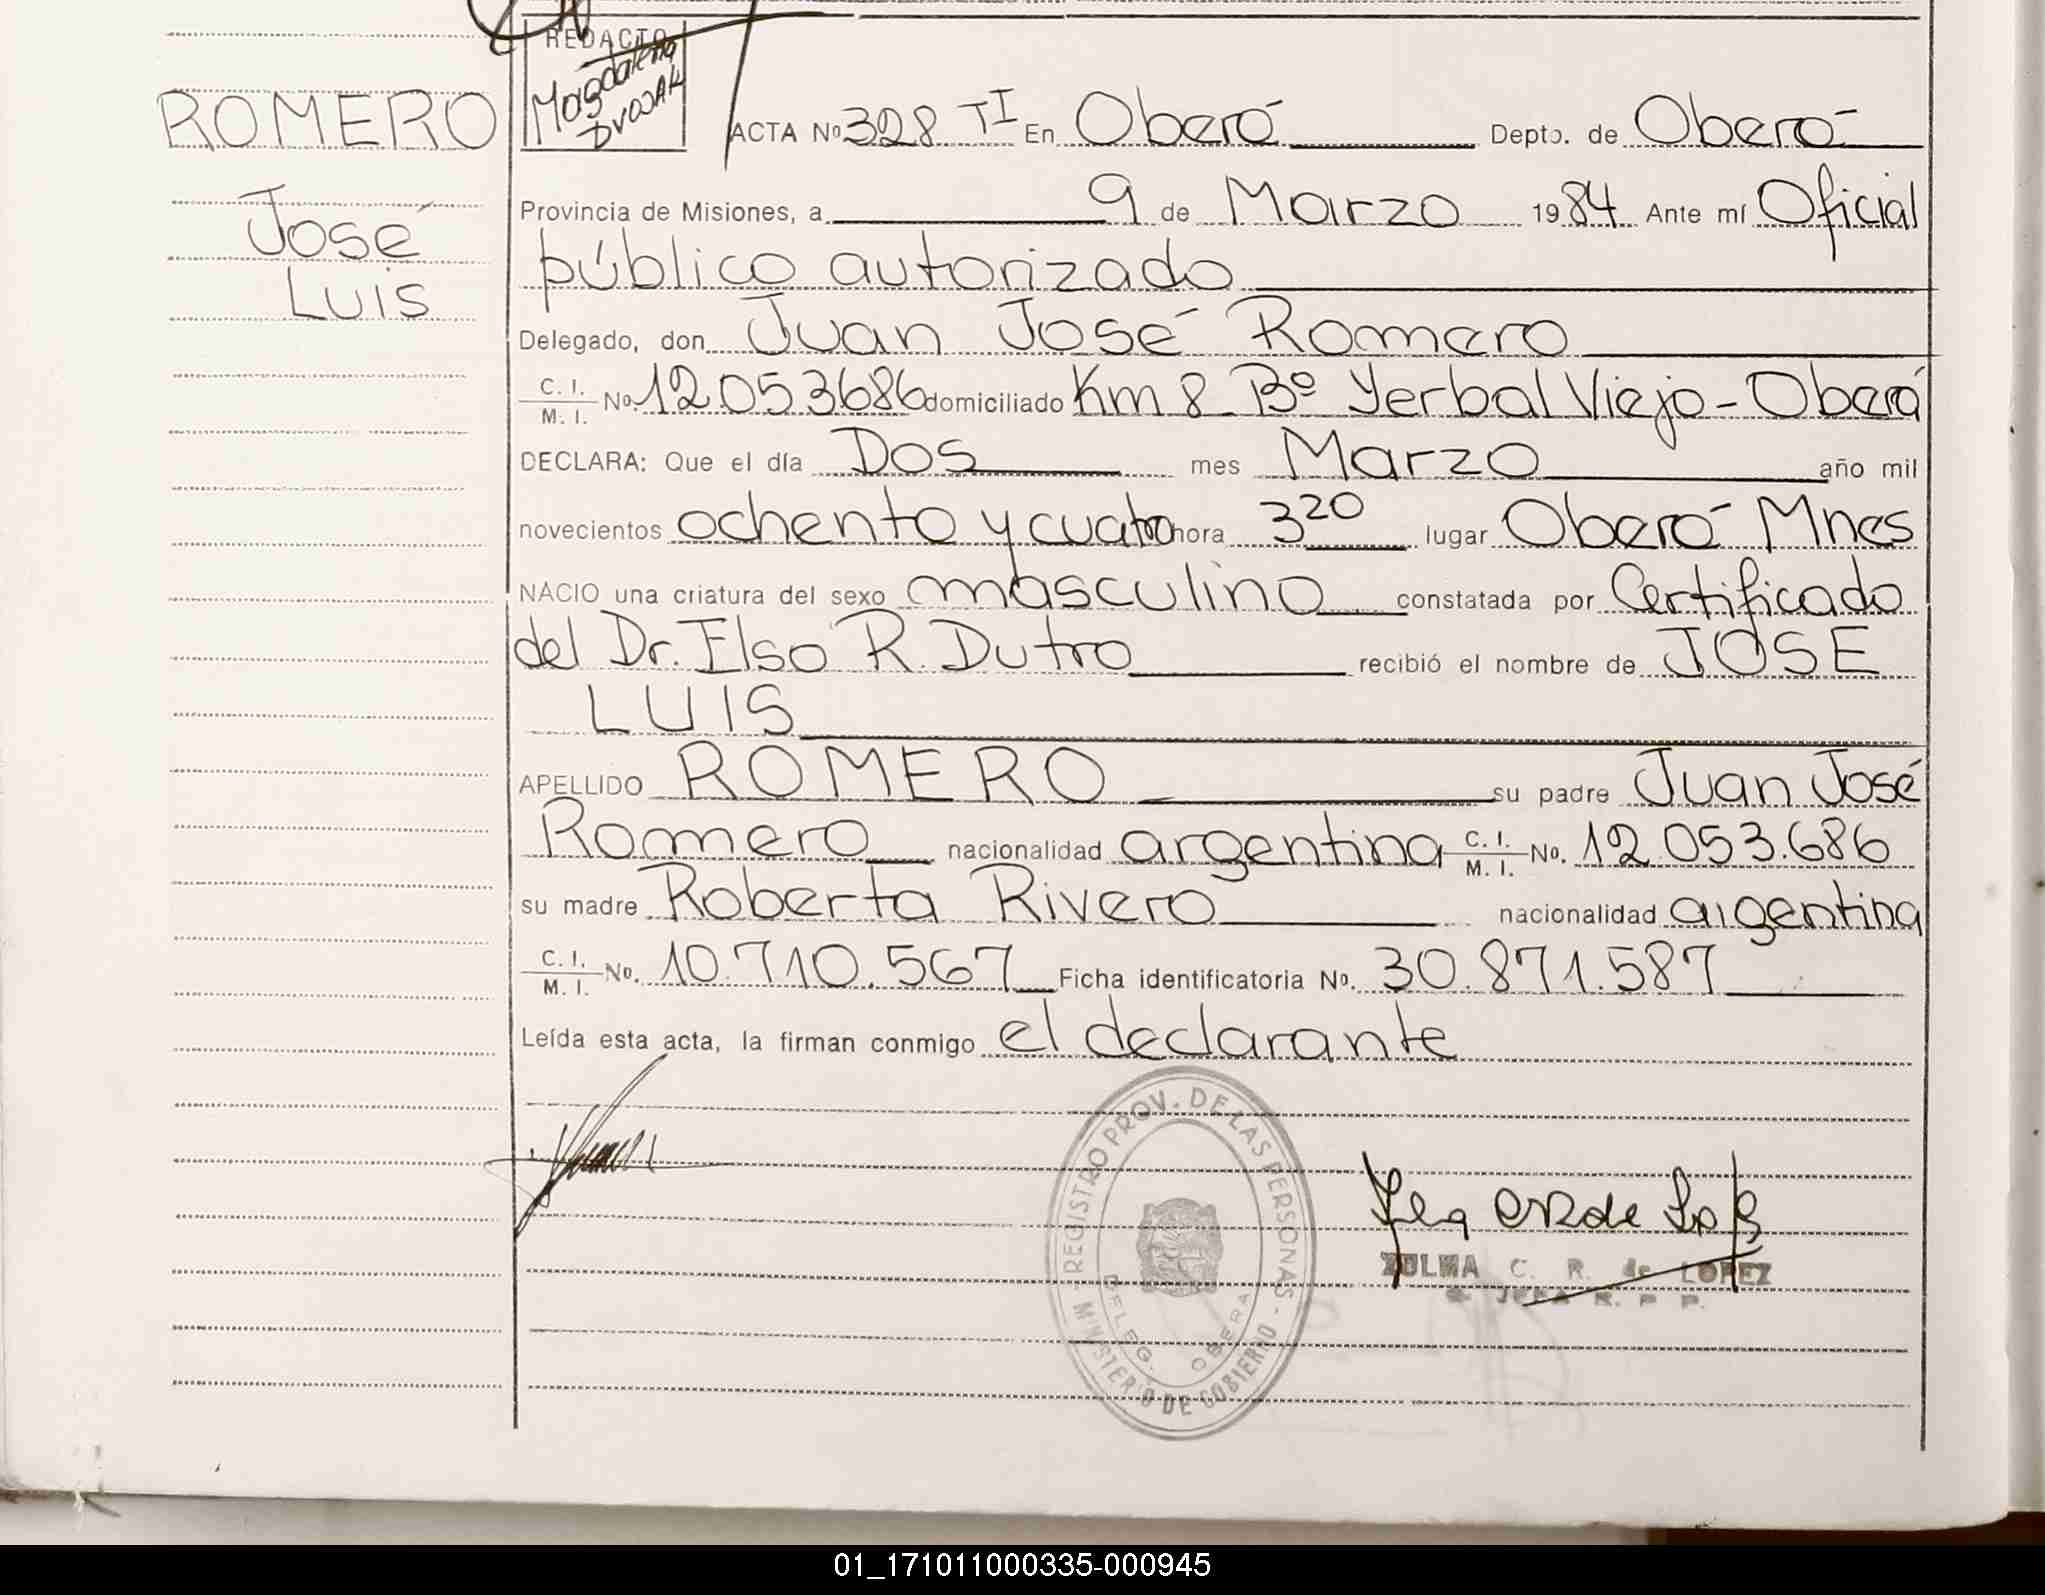 REDACTO
Magdalena
Dvojak
ROMERO
José
Luis
ACTA Nº 328 TI En Oberá Depto. de Oberá
Provincia de Misiones, a 9 de Marzo 1984 Ante mí Oficial
público autorizado
Delegado, don Juan José Romero
C. I. M. I. Nº 12.053686 domiciliado Km 8 Bº Yerbal Viejo - Oberá
DECLARA: Que el día Dos mes Marzo año mil
novecientos ochenta y cuatro hora 3 20 lugar Oberá Mnes
NACIO una criatura del sexo masculino constatada por Certificado
del Dr. Elso R. Dutro recibió el nombre de JOSE
LUIS
APELLIDO ROMERO su padre Juan José
Romero nacionalidad argentina C. I. M. I. Nº. 12.053.686
su madre Roberta Rivero nacionalidad argentina
C. I. M. I. Nº. 10.710.567 Ficha identificatoria Nº. 30.871.587
Leída esta acta, la firman conmigo el declarante
REGISTRO PROV. DE LAS PERSONAS - MINISTERIO DE GOBIERNO -
DELEG. OBERA
ZULMA C. R. de LOPEZ
01_171011000335-000945